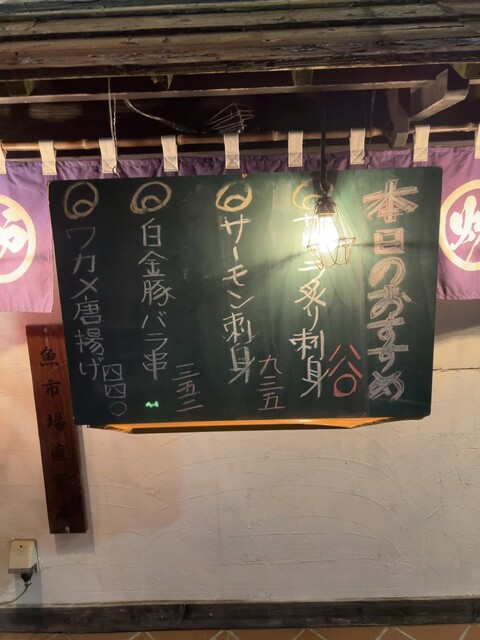 本日のおすすめ
炙り刺身
八八〇
サーモン刺身
九三五
白金豚バラ串
三五二
ワカメ唐揚げ
四四〇
魚市場直